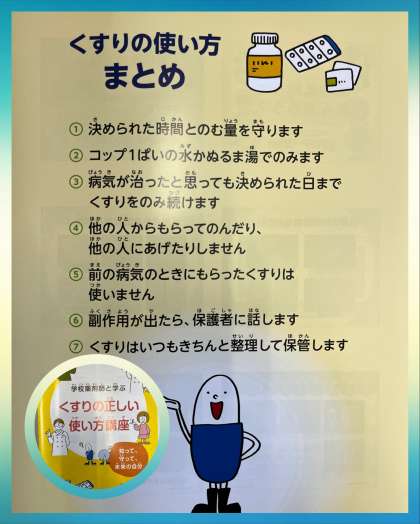 くすりの使い方
まとめ
① 決められた時間とのむ量を守ります
② コップ1ぱいの水かぬるま湯でのみます
③ 病気が治ったと思っても決められた日まで
くすりをのみ続けます
④ 他の人からもらってのんだり、
他の人にあげたりしません
⑤ 前の病気のときにもらったくすりは
使いません
⑥ 副作用が出たら、保護者に話します
⑦ くすりはいつもきちんと整理して保管します
学校薬剤師と学ぶ
くすりの正しい
使い方講座
知って、
守って、
未来の自分